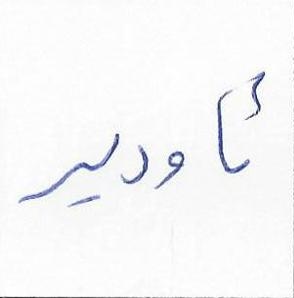 ئاودیر